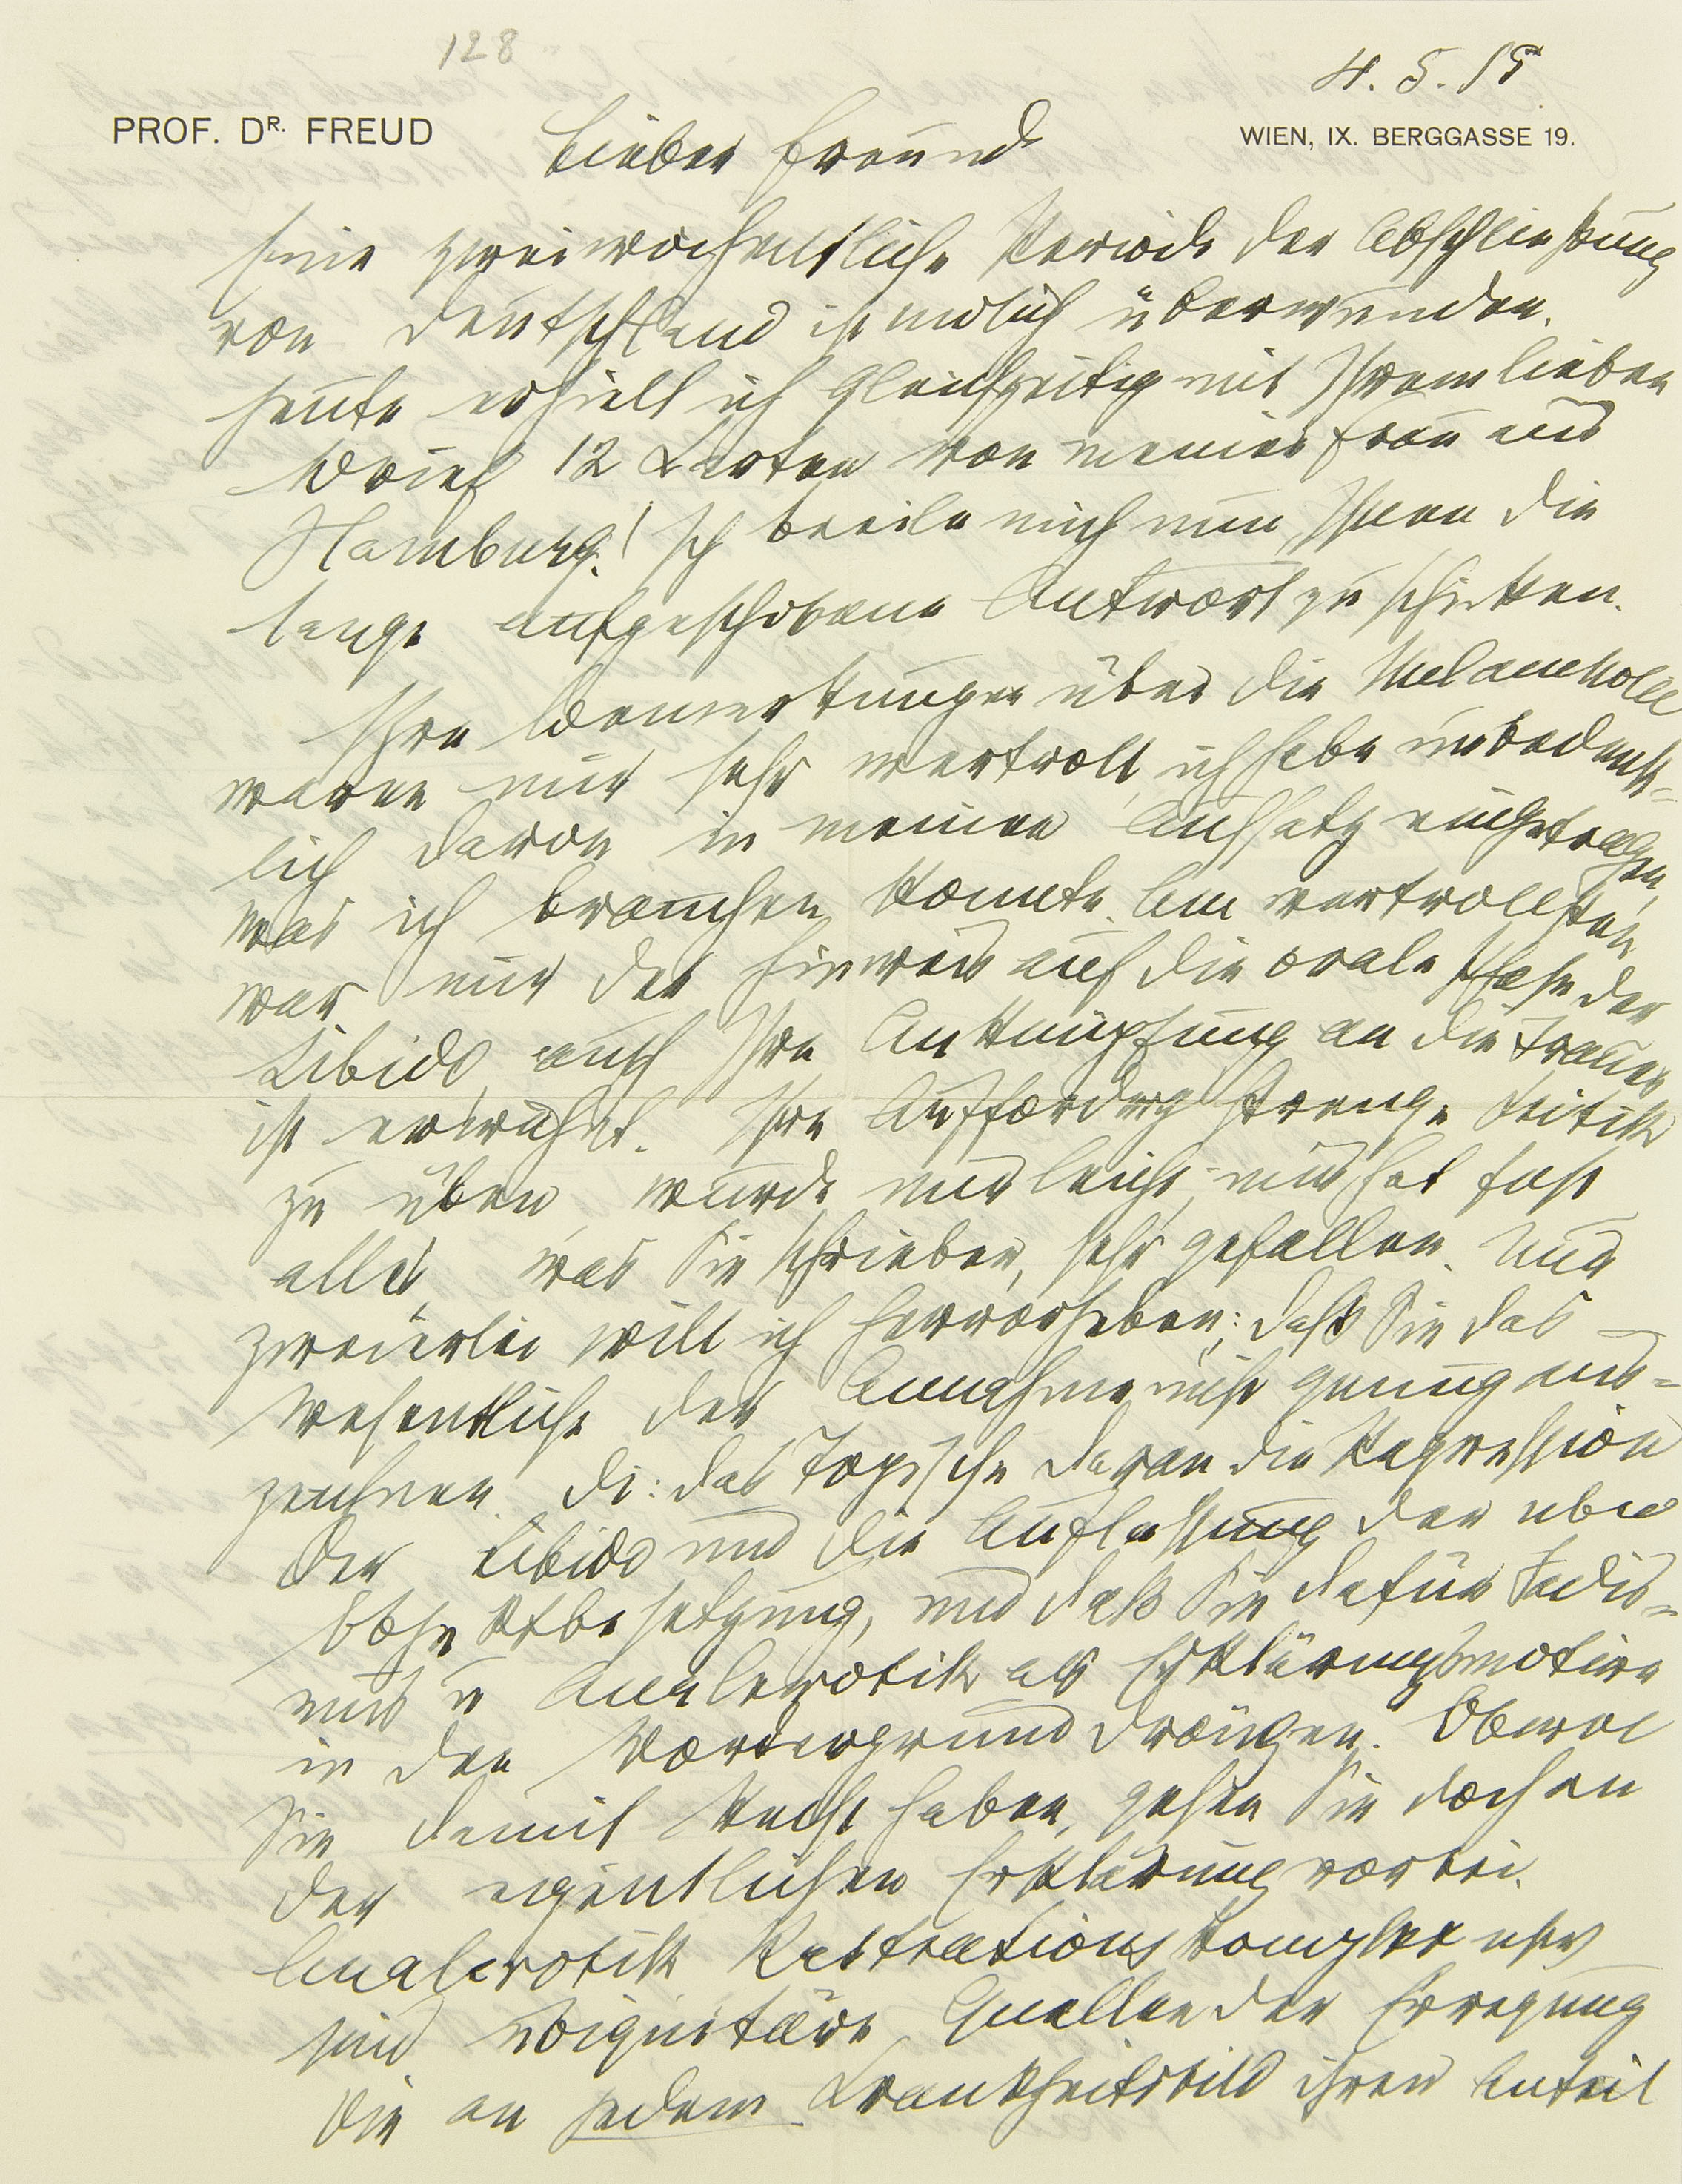 128
4. 5. 15
PROF. DR. FREUD
WIEN, IX. BERGGASSE 19.
Lieber Freund
Eine zweiwöchentliche Periode der Abschließung
von Deutschland ist endlich überwunden.
Heute erhielt ich gleichzeitig mit Ihrem lieben
Brief 12 Karten von meiner Frau aus
Hamburg! Ich beeile mich nun, Ihnen die
lange aufgeschobene Antwort zu schicken.
Ihre Bemerkungen über die Melancholie
waren mir sehr wertvoll, ich habe unbedenk=
lich davon in meinen Aufsatz eingetragen,
was ich brauchen konnte. Am wertvollsten
war mir der Hinweis auf die orale Phase der
Libido, auch Ihre Anknüpfung an die Trauer
ist erwähnt. Ihre Aufforderg strenge Kritik
zu üben, wurde mir leicht, mir hat fast
alles, was Sie schrieben, sehr gefallen. Nur
zweierlei will ich hervorheben: daß Sie das
Wesentliche der Annahme nicht genug aus=
zeichnen di: das Topische daran die Regression
der Libido und die Auflassung der ubw
Objektbesetzung, und daß Sie dafür Sadis=
mus u Analerotik als Erklärungsmotive
in den Vordergrund drängen. Obwol
Sie damit Recht haben, gehen Sie doch an
der eigentlichen Erklärung vorbei.
Analerotik Kastrationskomplex usw
sind ubiquitäre Quellen der Erregung
die an jedem Krankheitsbild ihren Anteil